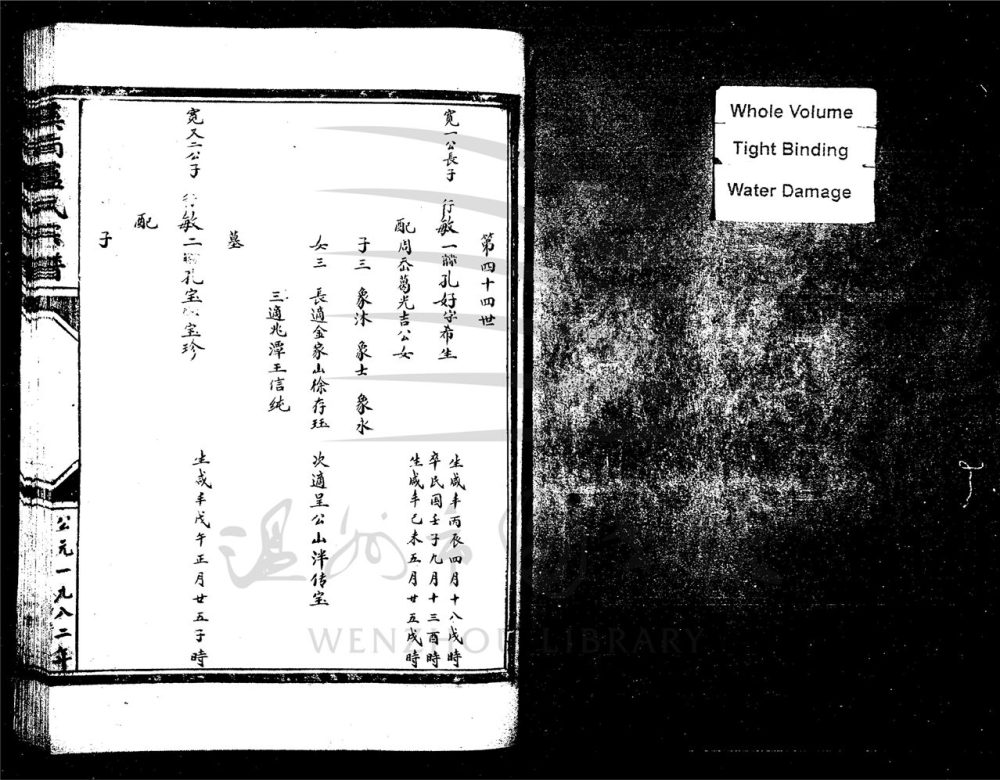 第四十四世
寛一公長子 行敏一 孔好字希生
生咸丰丙辰四月十八戌時
卒民国壬子九月十三酉時
配周岙葛光吉公女
生咸丰己未五月廿五戌時
子三 象沐 象士 象水
女三 長適金家山徐存珏 次適呈公山泮传宝
三適兆潭王信純
墓
寛又二公子 行敏二 孔宝 宝珍
生咸丰戊午正月廿五子時
配
子
公元一九八二年
Whole Volume
Tight Binding
Water Damage
温州市
WENZHOU LIBRARY